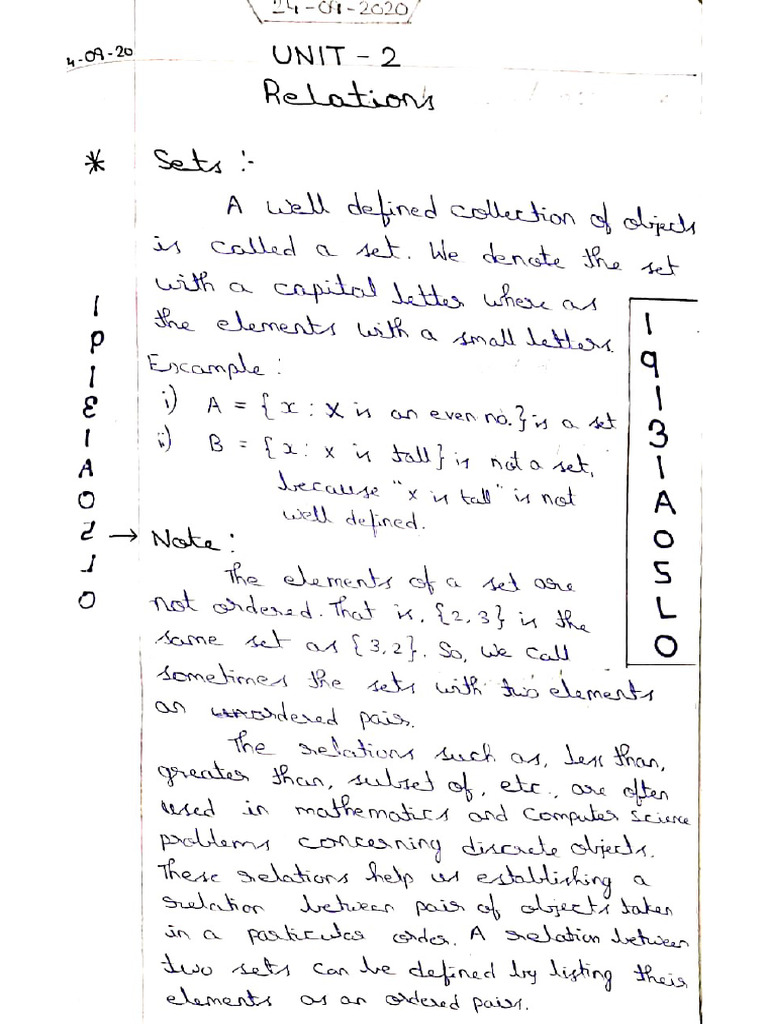 24-09-2020
4-09-20
UNIT - 2
Relations
* Sets :-
A well defined collection of objects
is called a set. We denote the set
with a capital letter where as
the elements with a small letters.
Example :
i) A = {x : x is an even no.} is a set
ii) B = {x : x is tall} is not a set,
because "x is tall" is not
well defined.
→ Note :
The elements of a set are
not ordered. That is, {2,3} is the
same set as {3,2}. So, we call
sometimes the sets with two elements
an unordered pair.
The relations such as, less than,
greater than, subset of, etc., are often
used in mathematics and computer science
problems concerning discrete objects.
These relations help us establishing a
relation between pair of objects taken
in a particular order. A relation between
two sets can be defined by listing their
elements as an ordered pairs.
1
9
1
3
1
A
0
5
L
0